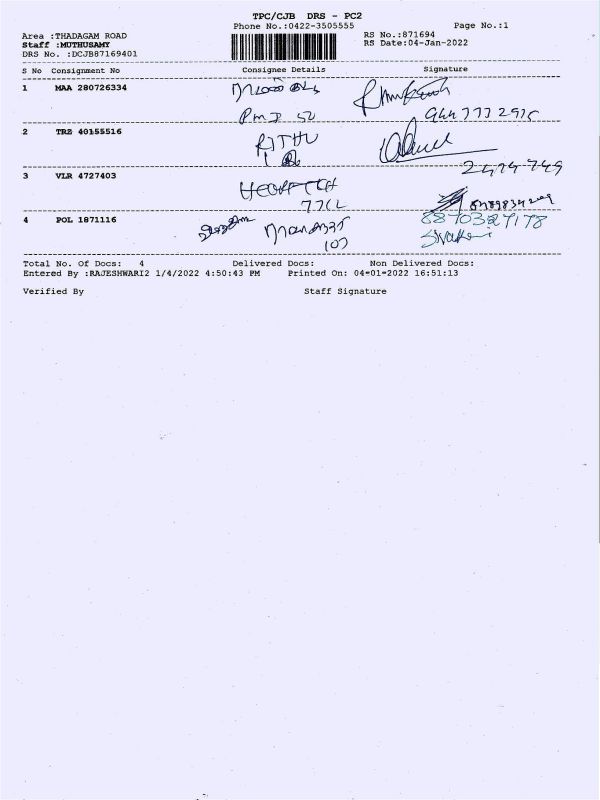 TPC/CJB DRS - PC2
Phone No.:0422-3505555 Page No.:1
Area :THADAGAM ROAD RS No.:871694
Staff :MUTHUSAMY RS Date:04-Jan-2022
DRS No. :DCJB87169401
S No Consignment No Consignee Details Signature
1 MAA 280726334
944 777 2915
2 TRZ 40155516 RITHU
2474749
3 VLR 4727403
4 POL 1871116 8870327178
107
Total No. Of Docs: 4 Delivered Docs: Non Delivered Docs:
Entered By :RAJESHWARI2 1/4/2022 4:50:43 PM Printed On: 04-01-2022 16:51:13
Verified By Staff Signature